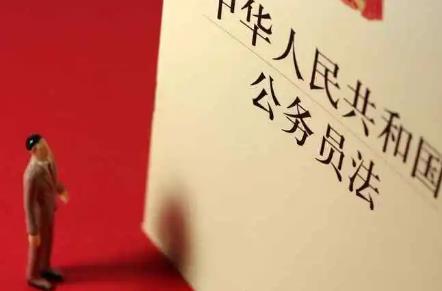 中华人民共和国
公务员法